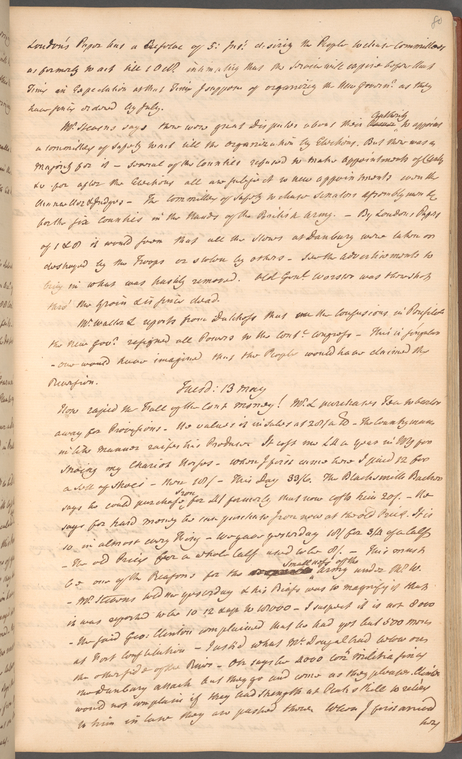 80
London's Paper has a Resolve of 5: Inst: desiring the People to chuse Committees
as formerly to act till 1 Octr. intimating that the Service will expire before that
Time in Expectation at that Time I suppose of organizing the New Governt. as they
have Junior ordered by July.
Mr. Stearns says there were great Disputes about their Authority to appoint
a Committee of Safety to act till the organization by Elections. But there was a
Majority for it – Several of the Counties refused to make appointments of Clerks
&c for after the Elections all are subject to new appointments even the
Chancellor & Judges – The Committee of Safety to chuse Senators & Assembly men &c
for the six Counties in the Hands of the British Army. – By Loudons Paper
of 1 & 8 it would seem that all the Stores at Danbury were taken or
destroyed by the Troops or stolen by others – See the advertisements to
bring in what was hastily removed. Old Genl. Worster was shot
thro' the Groin & is since dead.
Mr. Wallace reports from Dutchess that the Confusions in
the New Govt. resigned all Powers to the Cont. Congress – This is singular
– one would have imagined that the People would have claimed the
Reversion.
Tuesd: 13 May
How rapid the Fall of the Cont. Money! Mr. L purchases Tea to barter
away for Provisions – He values it in Sales at 20/ a lb – The Countryman
in like manner raises his Produce It cost me
Shoeing my Chariot Horses – when I first came here I paid 12/ for
a Set of Shoes – now 18/ – This Day 33/6. The Blacksmith
says he could purchase Iron for formerly that now costs him 20/. – He
says for hard money he can purchase Iron now at the old Price. It is
so in almost every Thing – We gave yesterday 18/ for 3/4 of a Calf
– the old Price for a whole Calf used to be 8/. – This must
be one of the Reasons for the Smallness of the Army under
– Mr. Stearns told me yesterday & his Bias was to magnify it that
it was reported to be 10 12 & to 18000 – I suspect it is not 8000
– He said Geo: Clinton complained that he had got but 500 men
at Fort Constitution – Just so what McDougal had below on
the other side of the River – Oth: says he 2000 Con. Militia since
the Danbury attack but they go and come as they please Clinton
would not complain if they had Strength at Peeks Kill to relieve
to him in case they are pushed there. When I first arrived
here